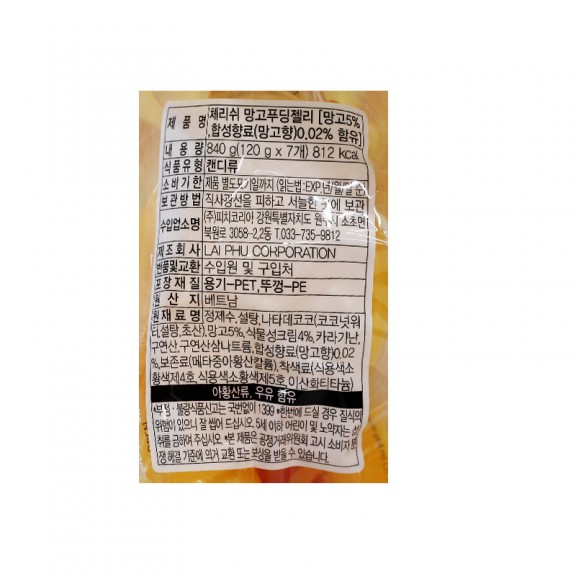 제품명 체리쉬 망고푸딩젤리 [망고5%
,합성향료(망고향)0.02% 함유]
내용량 840 g(120 g x 7개) 812 kcal
식품유형 캔디류
소비기한 제품 별도표기일까지 (읽는법:EXP 년/월/일 순)
보관방법 직사광선을 피하고 서늘한 곳에 보관
수입업소명 (주)피치코리아 강원특별자치도 원주시 소초면
북원로 3058-2,2동 T.033-735-9812
제조회사 LAI PHU CORPORATION
반품및교환 수입원 및 구입처
포장재질 용기-PET,뚜껑-PE
원산지 베트남
원재료명 정제수,설탕,나타데코코(코코넛워
터,설탕,초산),망고5%,식물성크림4%,카라기난,
구연산,구연산삼나트륨,합성향료(망고향)0.02
%,보존료(메타중아황산칼륨),착색료(식용색소
황색제4호,식용색소황색제5호,이산화티타늄)
아황산류, 우유 함유
*부정·불량식품신고는 국번없이 1399 *한번에 드실 경우 질식의
위험이 있으니 잘 씹어 드십시오. 5세 이하 어린이 및 노약자는 섭
취를 금하여 주십시오 *본 제품은 공정거래위원회 고시 소비자 분
쟁 해결 기준에 의거 교환 또는 보상을 받을 수 있습니다.